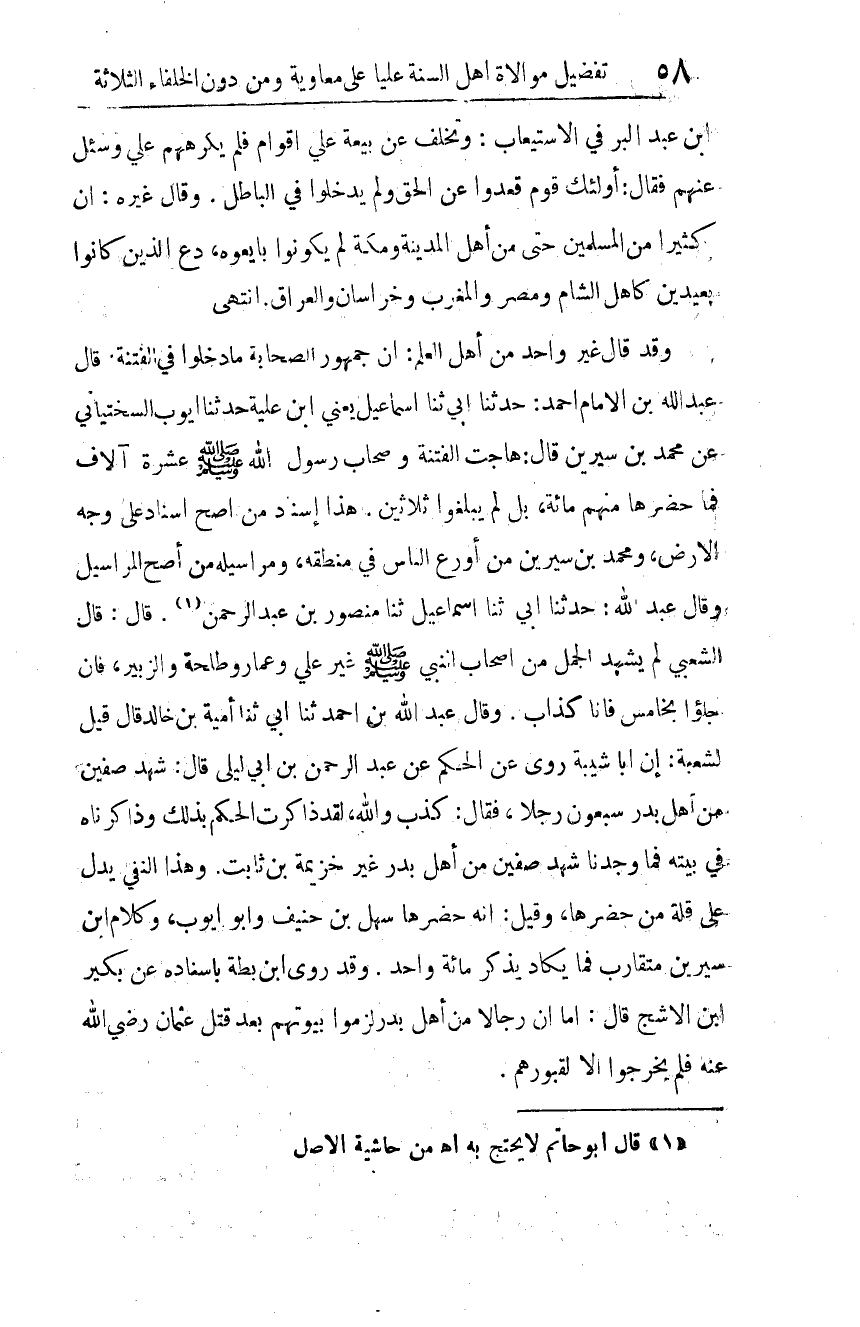 ٥٨ تفضيل موالاة اهل السنة عليا على معاوية ومن دون الخلفاء الثلاثة
ابن عبد البر في الاستيعاب : وتخلف عن بيعة علي اقوام فلم يكرههم علي وسئل
عنهم فقال: أولئك قوم قعدوا عن الحق ولم يدخلوا في الباطل . وقال غيره : ان
كثيرا من المسلمين حتى من أهل المدينة ومكة لم يكونوا بايعوه، دع الذين كانوا
بعيدين كاهل الشام ومصر والمغرب وخراسان والعراق. انتهى
وقد قال غير واحد من أهل العلم: ان جمهور الصحابة مادخلوا في الفتنة . قال
عبدالله بن الامام احمد: حدثنا ابي ثنا اسماعيل يعني ابن علية حدثنا ايوب السختياني
عن محمد بن سيرين قال: هاجت الفتنة و صحاب رسول الله ﷺ عشرة آلاف
فما حضرها منهم مائة، بل لم يبلغوا ثلاثين . هذا إسناد من اصح اسناد على وجه
الارض، ومحمد بن سيرين من أورع الناس في منطقه، ومراسيله من أصح المراسيل
وقال عبد الله : حدثنا ابي ثنا اسماعيل ثنا منصور بن عبدالرحمن (١) . قال : قال
الشعبي لم يشهد الجمل من اصحاب النبي ﷺ غير علي وعمار وطلحة والزبير، فان
جاؤا بخامس فانا كذاب . وقال عبد الله بن احمد ثنا ابي ثنا أمية بن خالد قال قيل
لشعبة : إن ابا شيبة روى عن الحكم عن عبد الرحمن بن ابي ليلى قال : شهد صفين
من أهل بدر سبعون رجلا ، فقال : كذب والله، لقد ذاكرت الحكم بذلك وذاكرناه
في بيته فما وجدنا شهد صفين من أهل بدر غير خزيمة بن ثابت. وهذا النفي يدل
على قلة من حضرها، وقيل : انه حضرها سهل بن حنيف وابو ايوب، وكلام ابن
سيرين متقارب فما يكاد يذكر مائة واحد . وقد روى ابن بطة باسناده عن بكير
ابن الاشج قال : اما ان رجالا من أهل بدر لزموا بيوتهم بعد قتل عثمان رضي الله
عنه فلم يخرجوا الا لقبورهم .
«١» قال ابو حاتم لا يحتج به اه من حاشية الاصل